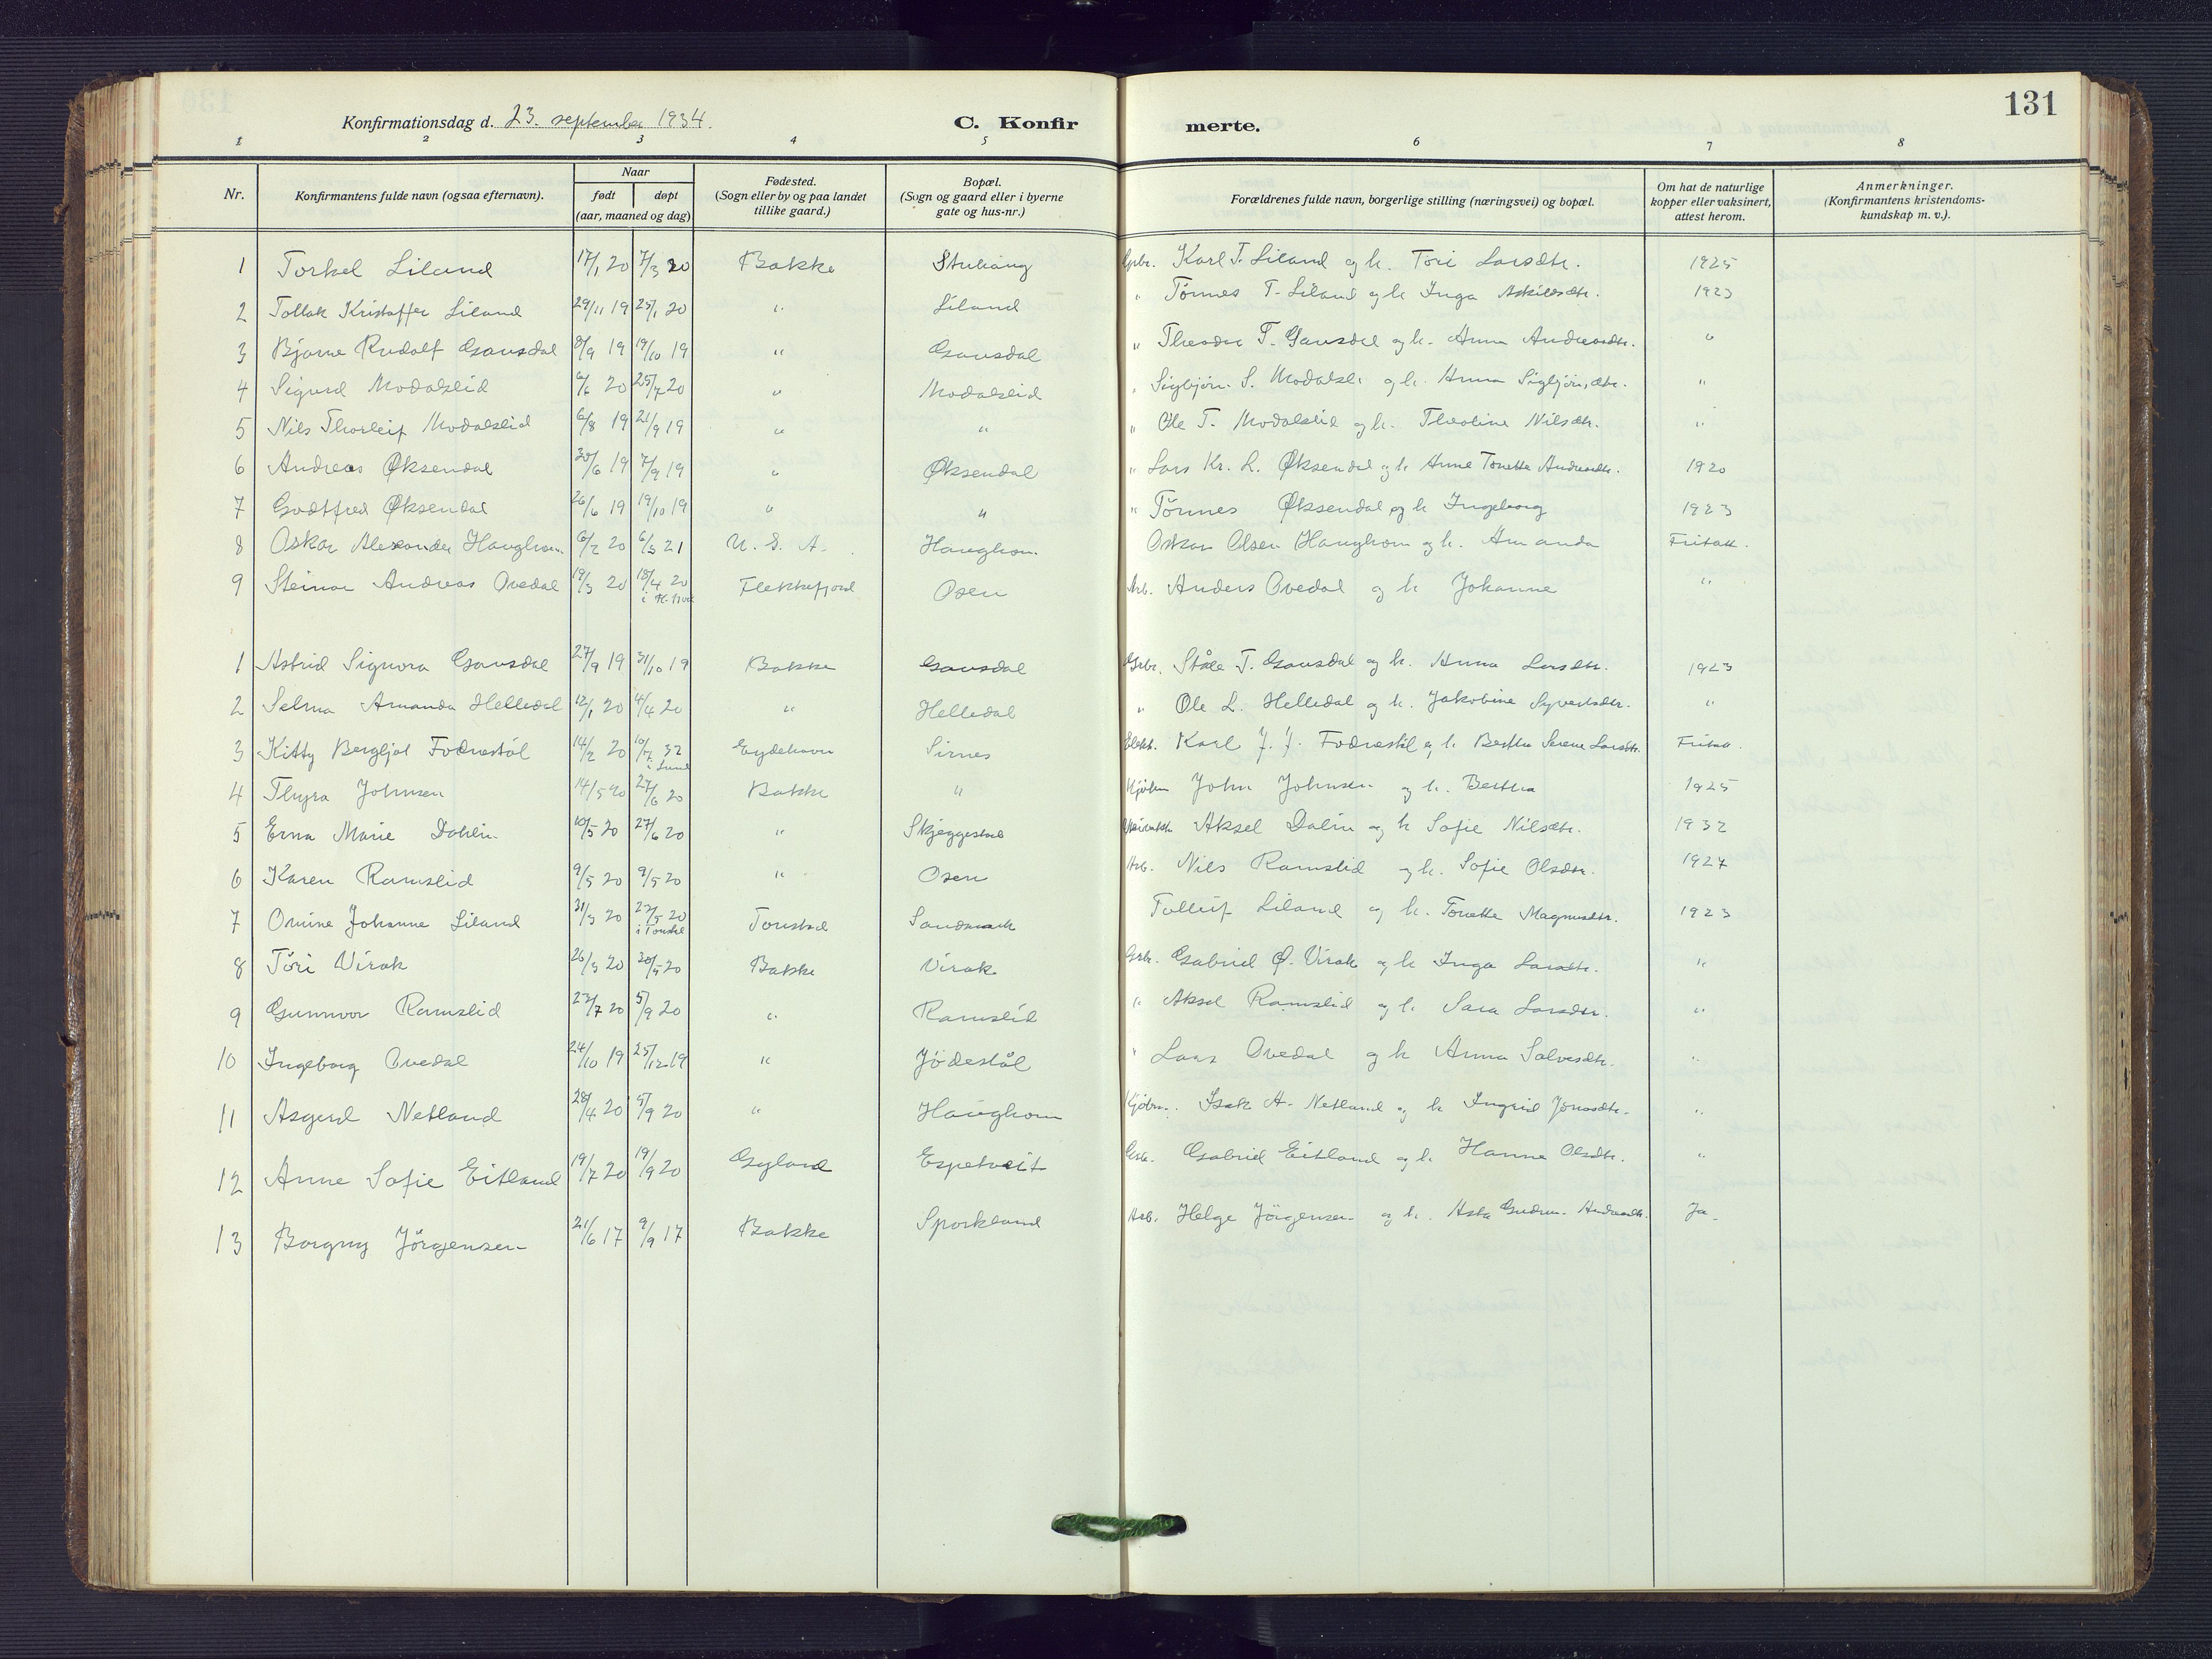 131
Konfirmationsdag d. 23. september 1934.
C. Konfirmerte.
1 2 3 4 5 6 7 8
Nr.
Konfirmantens fulde navn (ogsaa efternavn).
Naar
født døpt
(aar, maaned og dag)
Fødested.
(Sogn eller by og paa landet
tillike gaard.)
Bopæl.
(Sogn og gaard eller i byerne
gate og hus-nr.)
Forældrenes fulde navn, borgerlige stilling (næringsvei) og bopæl.
Om hat de naturlige
kopper eller vaksinert,
attest herom.
Anmerkninger.
(Konfirmantens kristendoms-
kundskap m. v.).
1 Torkel Liland 17/1 20 7/3 20 Bakke Gbr. Karl T. Liland og h. Töri Larsdtr. 1925
2 Tollak Kristoffer Liland 29/11 19 25/1 20 " Liland " Tönnes T. Liland og h. Inga Askildsdtr. 1923
3 Bjarne Rudolf Gausdal 8/9 19 19/10 19 " Gausdal " Theodor T. Gausdal og h. Anna Andreasdtr. "
4 Sigurd Modalslid 6/6 20 25/7 20 " Modalslid " Sigbjörn S. Modalsli og h. Anna Sigbjörnsdtr. "
5 Nils Thorleif Modalslid 6/8 19 21/9 19 " " " Ole T. Modalslid og h. Theoline Nilsdtr. "
6 Andreas Øksendal 30/6 19 7/9 19 " Øksendal " Lars Kr. L. Øksendal og h. Anne Tonette Andreasdtr. 1920
7 Godtfred Øksendal 26/6 19 19/10 19 " " " Tönnes Øksendal og h. Ingeborg 1923
8 Oskar Alexander Haughom 6/2 20 6/3 21 U. S. A. Haughom Oskar Olsen Haughom og h. Amanda Fritatt.
9 Steinar Andreas Ovedal 19/3 20 18/4 20 Flekkefjord Osen Arb. Anders Ovedal og h. Johanne "
1 Astrid Signora Gausdal 27/9 19 31/10 19 Bakke Gausdal Gbr. Ståle T. Gausdal og h. Anna Larsdtr. 1923
2 Selma Amanda Helledal 12/1 20 4/4 20 " Helledal " Ole L. Helledal og h. Jakobine Syvertsdtr. "
3 Kitty Bergljot Fodnestöl 14/2 20 10/7 32 i Lund Eydehavn Sirnes Karl J. J. Fodnestöl og h. Bertha Serene Larsdtr. Fritatt.
4 Thyra Johnsen 14/5 20 27/6 20 Bakke " Kjöbm John Johnsen og h. Bertha 1925
5 Erna Marie Dahlin 10/5 20 27/6 20 " Skjeggestad Aksel Dalin og h Sofie Nilsdtr. 1932
6 Karen Ramslid 9/5 20 9/5 20 " Osen Arb. Nils Ramslid og h. Sofie Olsdtr. 1927
7 Omine Johanne Liland 31/3 20 23/5 20 i Tonstad Tonstad Sandsmark Tolleif Liland og h. Tonette Magnusdtr. 1923
8 Töri Virak 26/3 20 30/5 20 Bakke Virak Gbr. Gabriel O. Virak og h Inga Larsdtr. "
9 Gunnvor Ramslid 23/7 20 5/9 20 " Ramslid " Aksel Ramslid og h. Sara Larsdtr. "
10 Ingeborg Ovedal 24/10 19 25/12 19 " Jödestöl " Lars Ovedal og h Anna Salvesdtr. "
11 Asgerd Netland 28/4 20 5/9 20 " Haughom Kjöbm. Isak A. Netland og h Ingrid Jonasdtr. "
12 Anne Sofie Eitland 19/7 20 19/9 20 Gyland Espetveit Gbr. Gabriel Eitland og h. Hanne Olsdtr. "
13 Borgny Jörgensen 21/6 17 9/9 17 Bakke Sporkland Arb. Helge Jörgensen og h. Asta Gudrun Andreasdtr. Ja.